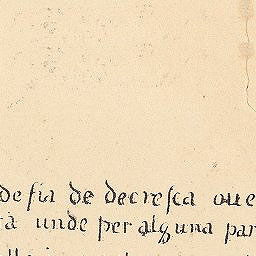 de sia de decresca oue
ra unde per alguna par